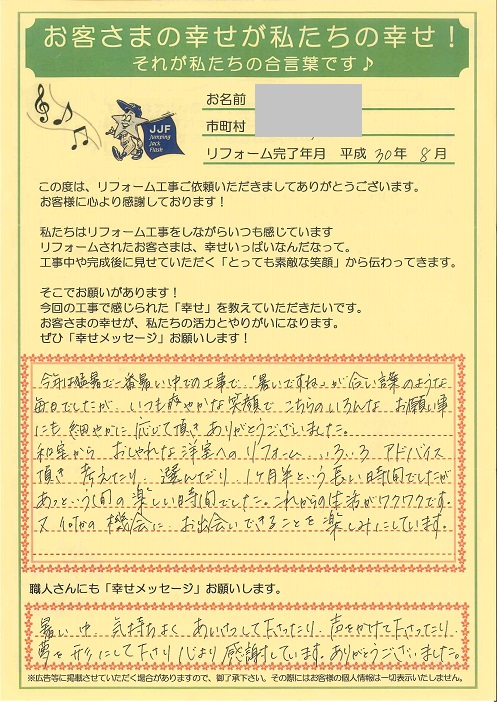 お客さまの幸せが私たちの幸せ！
それが私たちの合言葉です♪
お名前
市町村
リフォーム完了年月 平成 30年 8月
JJF
Jumping
Jack
Flash
この度は、リフォーム工事ご依頼いただきましてありがとうございます。
お客様に心より感謝しております！
私たちはリフォーム工事をしながらいつも感じています
リフォームされたお客さまは、幸せいっぱいなんだなって。
工事中や完成後に見せていただく「とっても素敵な笑顔」から伝わってきます。
そこでお願いがあります！
今回の工事で感じられた「幸せ」を教えていただきたいです。
お客さまの幸せが、私たちの活力とやりがいになります。
ぜひ「幸せメッセージ」お願いします！
今年は猛暑で一番暑い中での工事で、「暑いですね」が合い言葉のような
毎日でしたが、いつも爽やかな笑顔で こちらのいろんな お願い事
にも 細やかに 応じて頂き ありがとうございました。
和室から おしゃれな洋室へのリフォーム いろいろ アドバイス
頂き 考えたり 選んだり 1ヶ月半という 長い時間でしたが
あっという間の楽しい時間でした。これからの生活がワクワクです。
又 何かの 機会に お出会いできることを 楽しみにしています。
職人さんにも「幸せメッセージ」お願いします。
暑い中 気持ちよく あいさつして下さったり 声をかけて下さったり
夢を 形にして下さり 心より 感謝しています。ありがとうございました。
※広告等に掲載させていただく場合がありますので、御了承下さい。その際にはお客様の個人情報は一切表示いたしません。